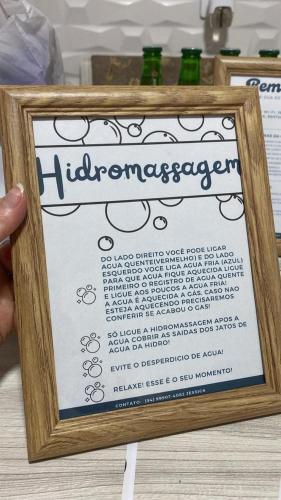 Hidromassagem
DO LADO DIREITO VOCÊ PODE LIGAR
AGUA QUENTE(VERMELHO) E DO LADO
ESQUERDO VOCE LIGA AGUA FRIA (AZUL)
PARA QUE AGUA FIQUE AQUECIDA LIGUE
PRIMEIRO O REGISTRO DE AGUA QUENTE
E LIGUE AOS POUCOS A AGUA FRIA!
A AGUA É AQUECIDA A GÁS, CASO NAO
ESTEJA AQUECENDO PRECISAREMOS
CONFERIR SE ACABOU O GAS!
SÓ LIGUE A HIDROMASSAGEM APOS A
AGUA COBRIR AS SAIDAS DOS JATOS DE
AGUA DA HIDRO!
EVITE O DESPERDICIO DE AGUA!
RELAXE! ESSE É O SEU MOMENTO!
CONTATO: JESSICA
Bem